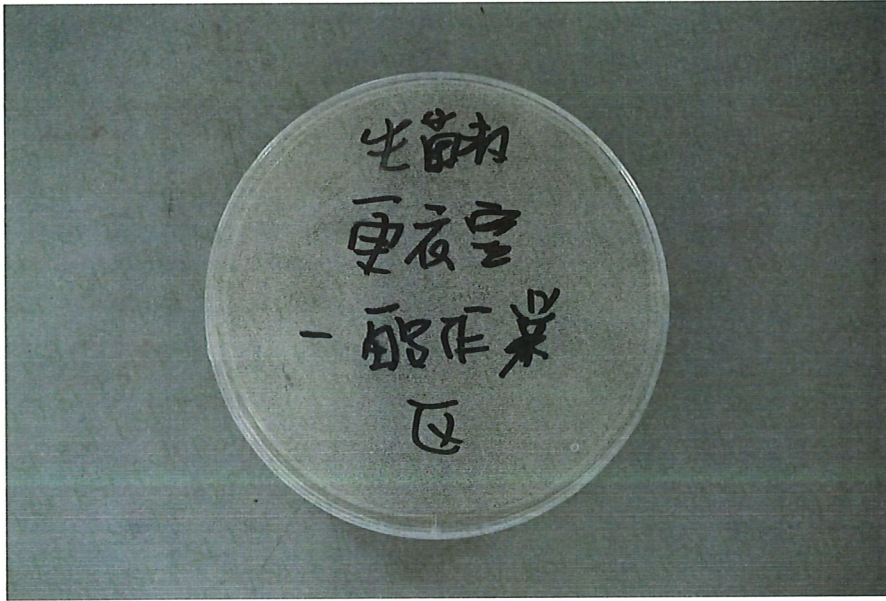 生菌數
更衣室
一般作業
区